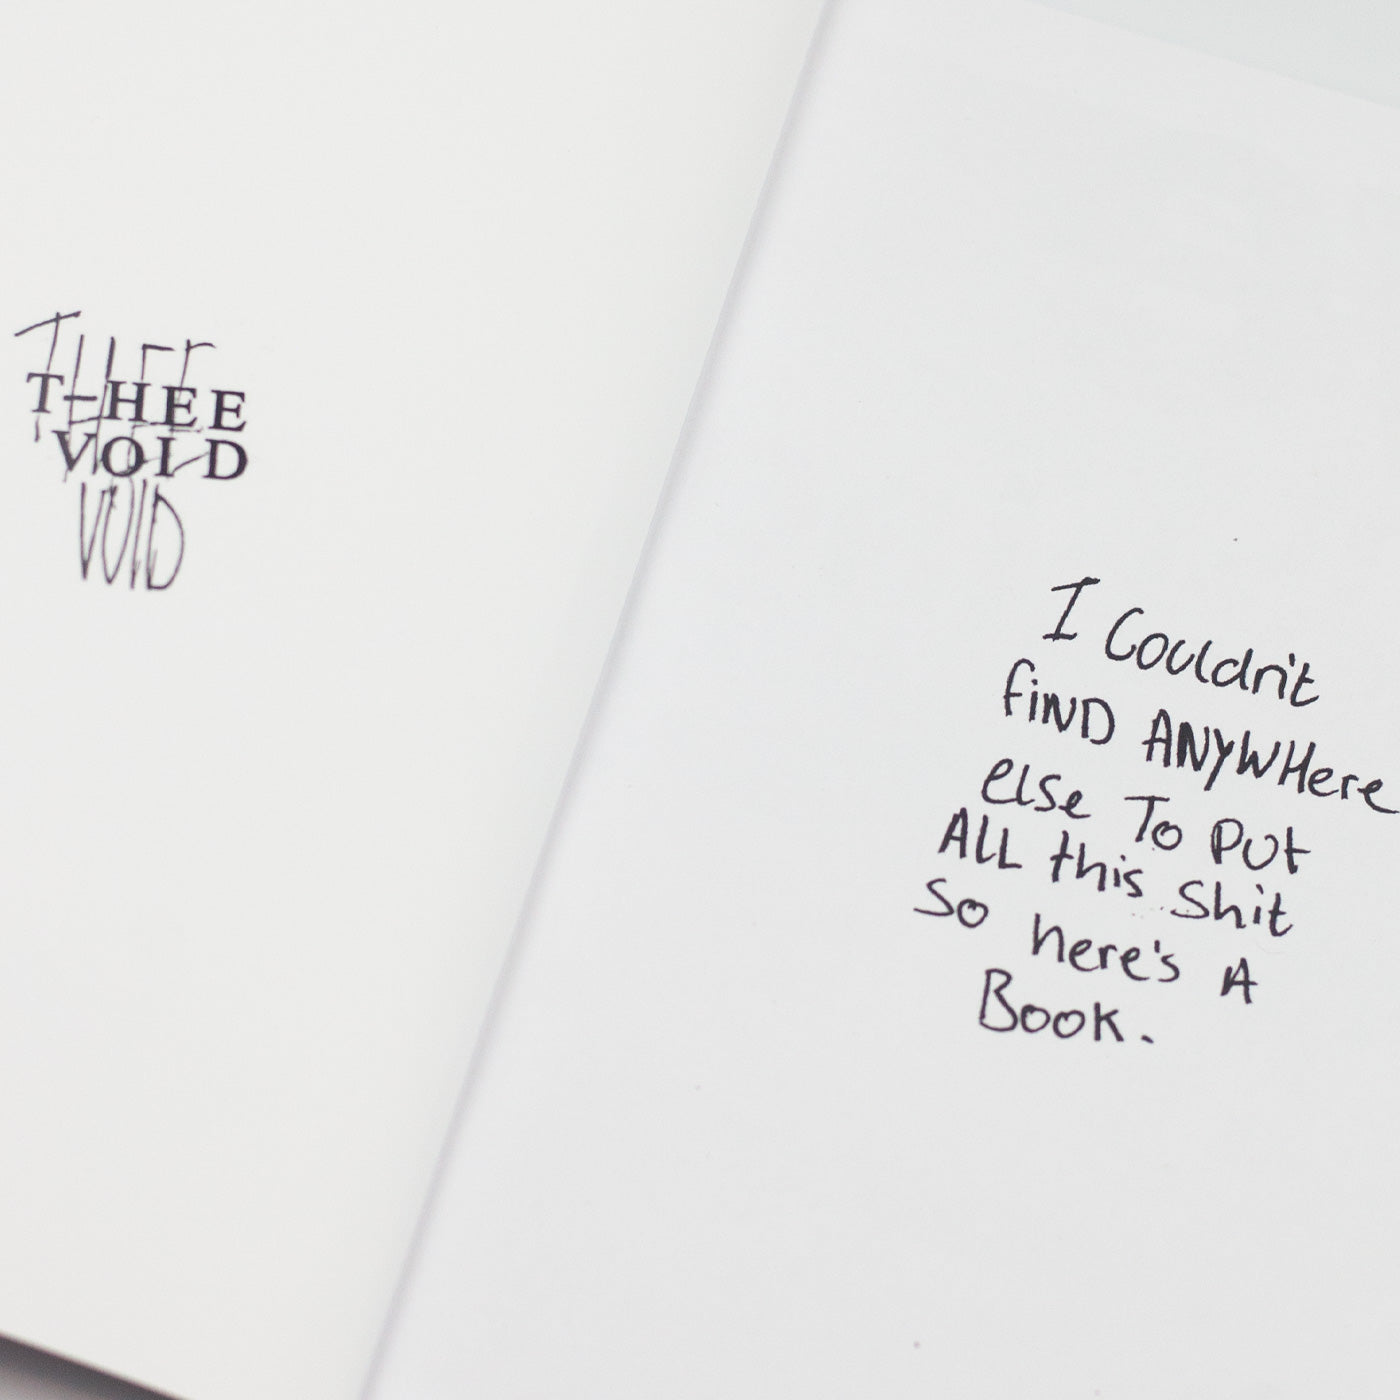 THEE
T-HEE
VOID
VOID
I Couldn't
find ANYWHere
else To PUt
ALL this Shit
So here's A
Book.